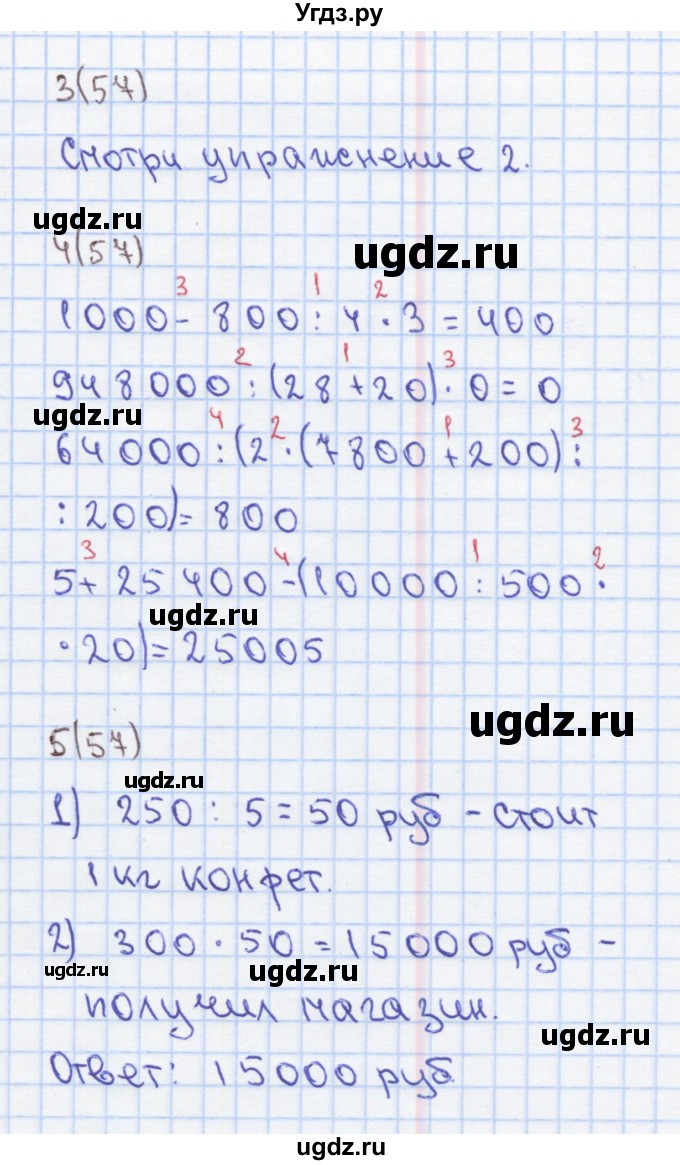 Угдз.ру
3(57)
Смотри упражнение 2.
ugdz.ru
ugdz.ru
4(57)
3 1 2
1000 - 800 : 4 · 3 = 400
2 1 3
948000 : (28 + 20) · 0 = 0
ugdz.ru
4 2 1 3
64000 : (2 · (7800 + 200) :
: 200) = 800
3 4 1 2
5 + 25400 - (10000 : 500 ·
ugdz.ru
· 20) = 25005
ugdz.ru
5(57)
ugdz.ru
1) 250 : 5 = 50 руб - стоит
1 кг конфет.
2) 300 · 50 = 15000 руб -
ugdz.ru
ugdz.ru
получил магазин.
ugdz.ru
Ответ: 15000 руб
ugdz.ru